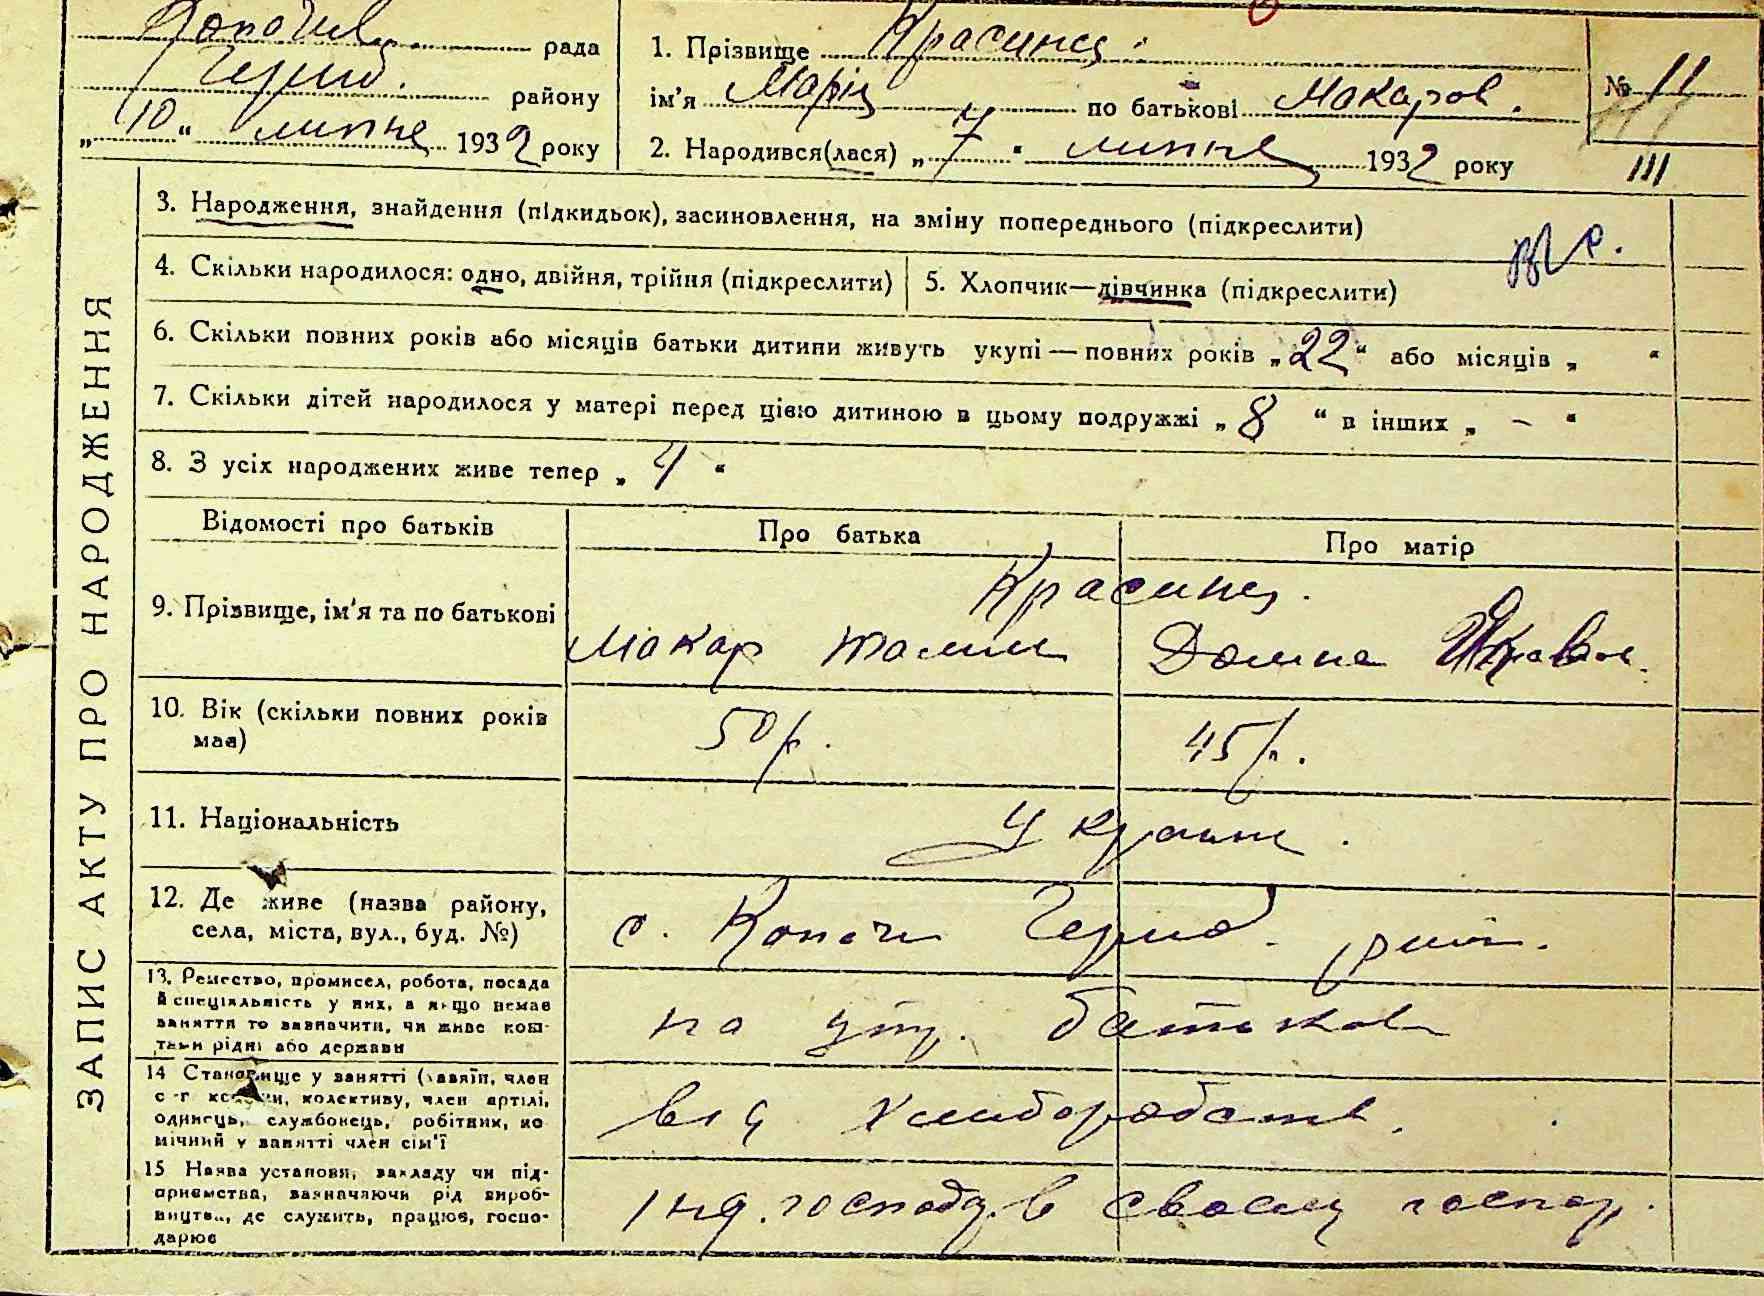 Копачів. рада
Чорноб. району
„10“ липня 1932 року
1. Прізвище Красинец.
ім'я Марія по батькові Макаров.
2. Народився(лася) „7“ липня 1932 року
№ 11
III
3. Народження, знайдення (підкидьок), засиновлення, на зміну попереднього (підкреслити)
4. Скільки народилося: одно, двійня, трійня (підкреслити)
5. Хлопчик—дівчинка (підкреслити)
6. Скільки повних років або місяців батьки дитини живуть укупі — повних років „22“ або місяців „ “
7. Скільки дітей народилося у матері перед цією дитиною в цьому подружжі „8“ в інших „ – “
8. З усіх народжених живе тепер „4“
Відомості про батьків
Про батька
Про матір
9. Прізвище, ім'я та по батькові
Красинец.
Макар
Домна
10. Вік (скільки повних років має)
50 р.
45 р.
11. Національність
Україн.
12. Де живе (назва району,
села, міста, вул., буд. №)
с. Копачи Чорноб. район.
13. Ремество, промисел, робота, посада
й спеціальність у них, а якщо немає
заняття то зазначити, чи живе кош-
тами рідні або держави
на утр. батьков
14 Становище у занятті (хазяїн, член
с-г комуни, колективу, член артілі,
одинець, службовець, робітник, по
мічний у занятті член сім'ї
від хлиборобств.
15 Назва установи, закладу чи під-
приємства, зазначаючи рід вироб-
ництва, де служить, працює, госпо-
дарює
інд. господ. в своему господ.
ЗАПИС АКТУ ПРО НАРОДЖЕННЯ